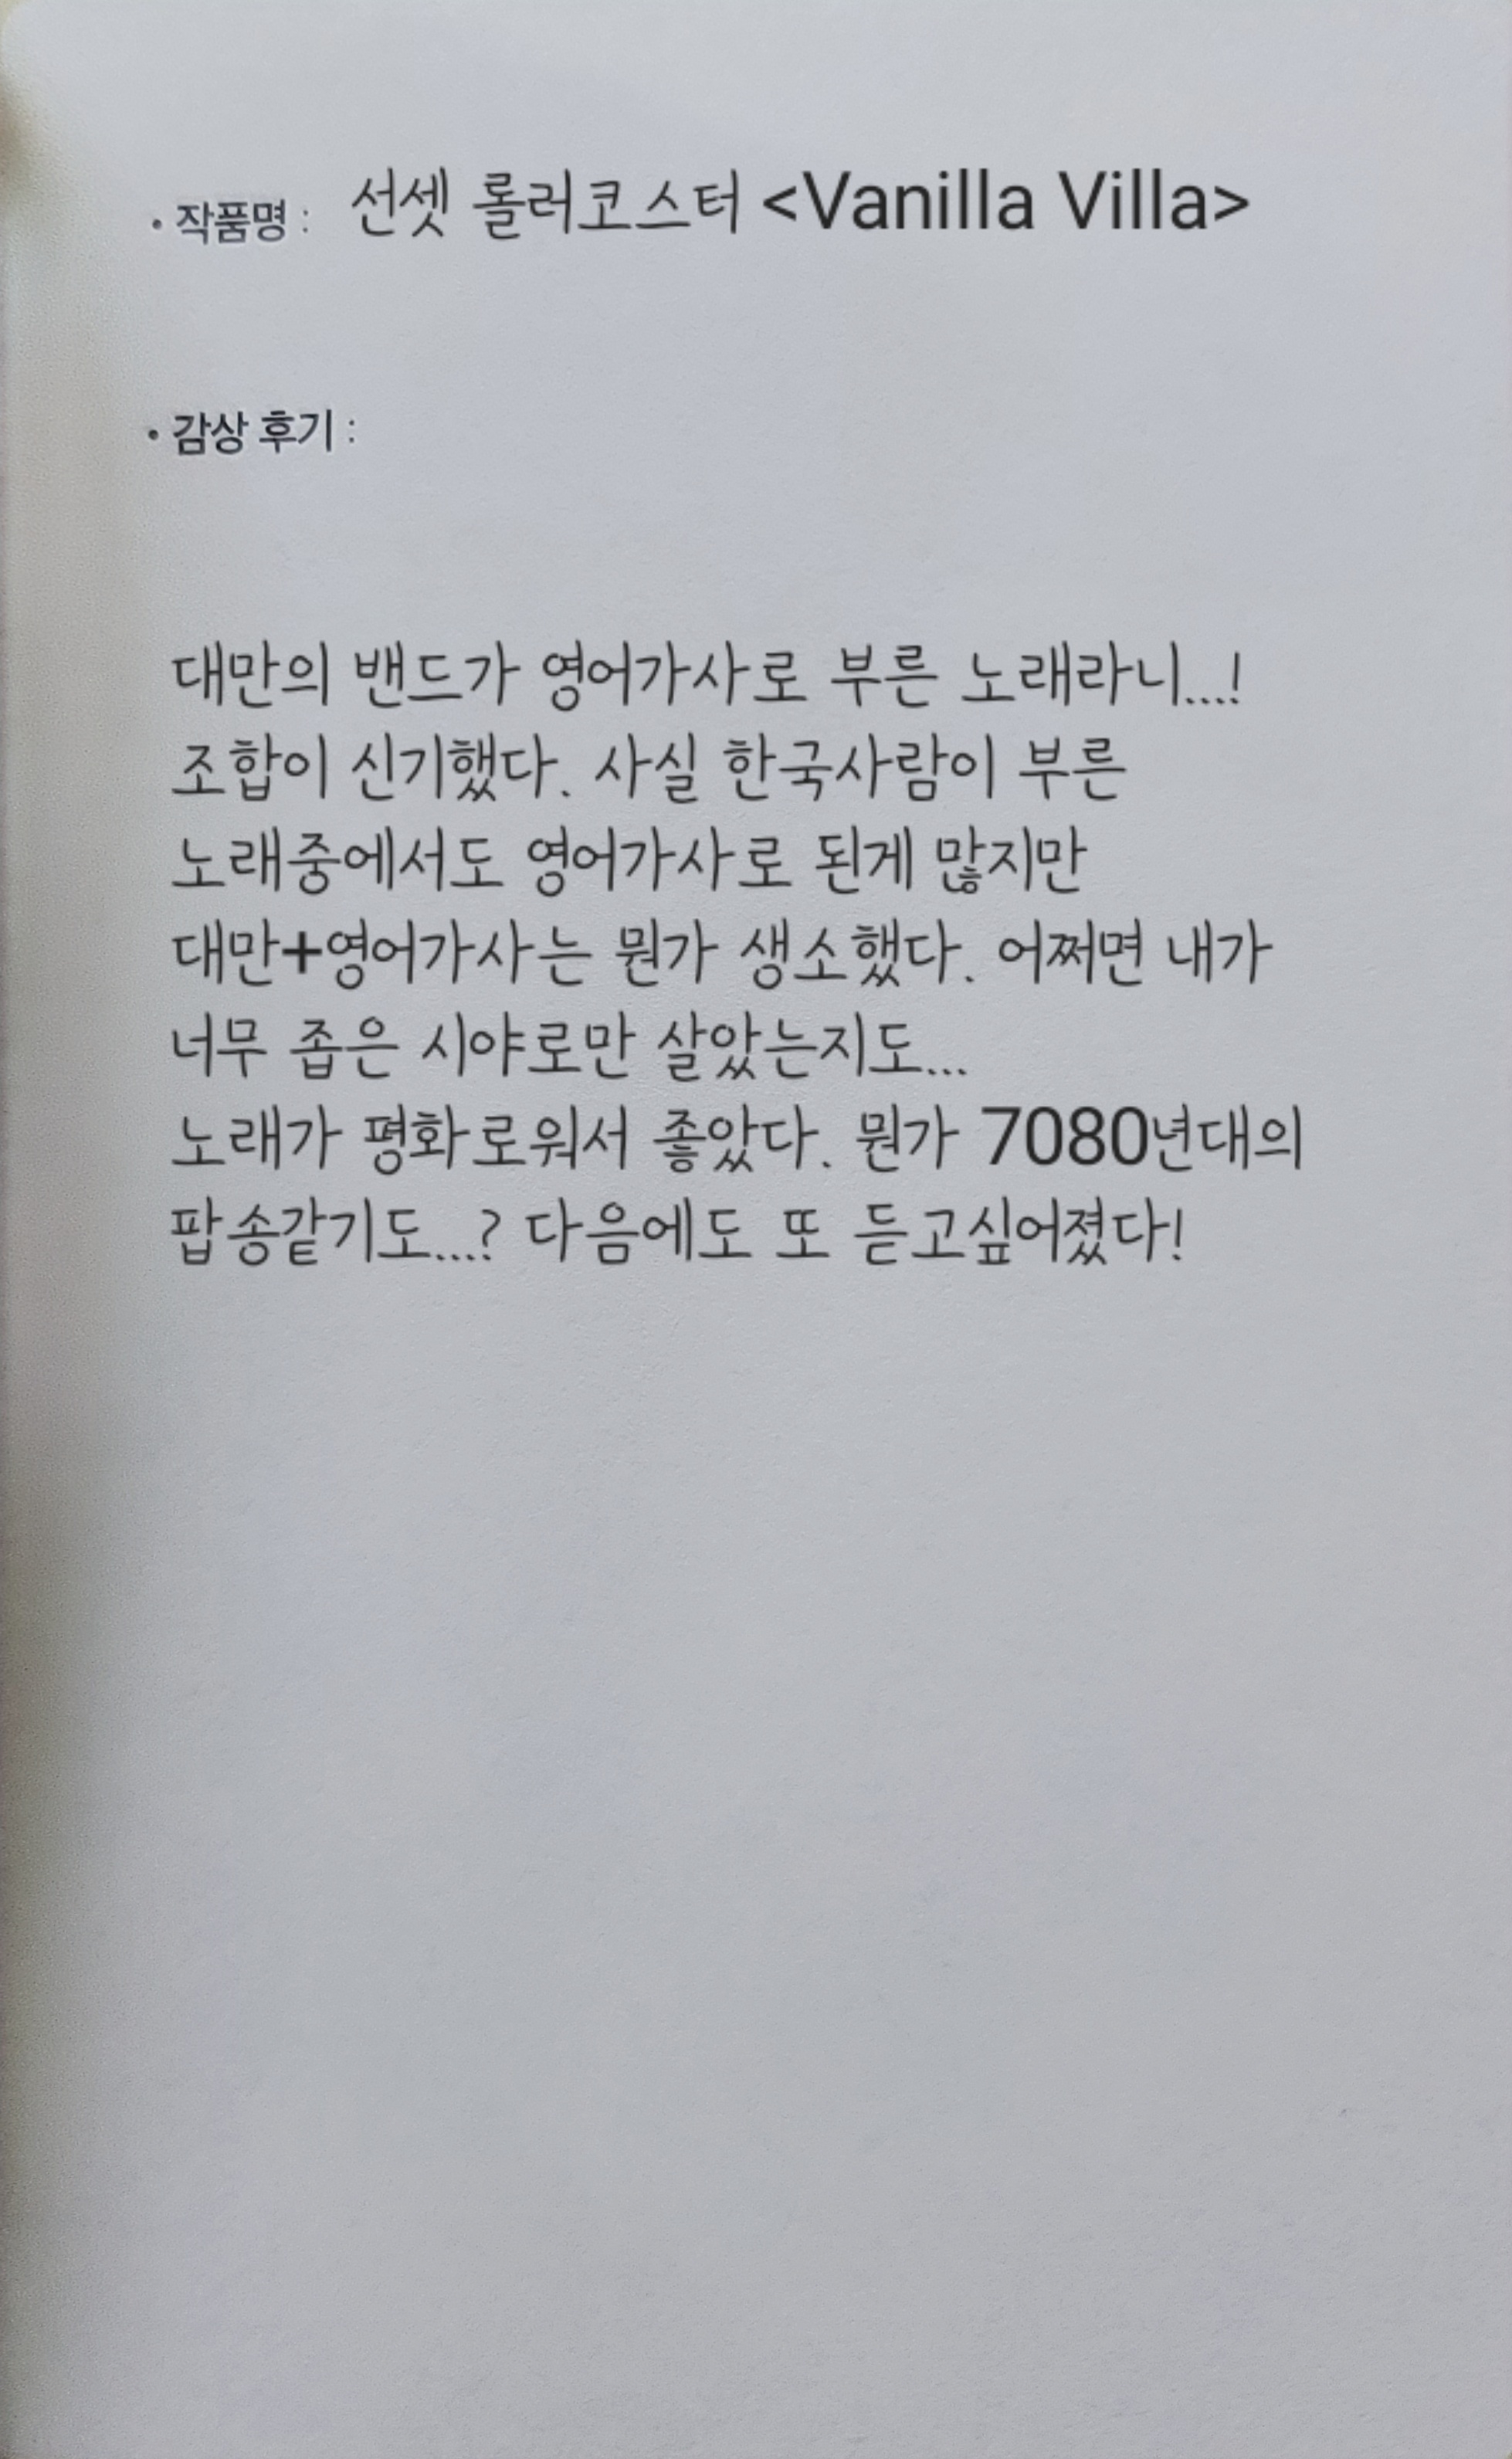 • 작품명 : 선셋 롤러코스터 <Vanilla Villa>
• 감상 후기 :
대만의 밴드가 영어가사로 부른 노래라니...!
조합이 신기했다. 사실 한국사람이 부른
노래중에서도 영어가사로 된게 많지만
대만+영어가사는 뭔가 생소했다. 어쩌면 내가
너무 좁은 시야로만 살았는지도...
노래가 평화로워서 좋았다. 뭔가 7080년대의
팝송같기도...? 다음에도 또 듣고싶어졌다!